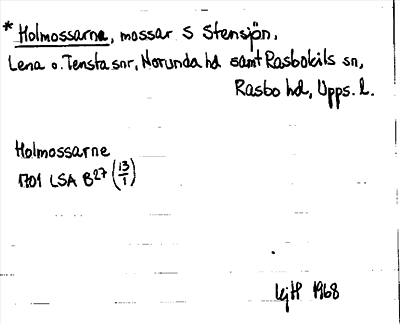 * Holmossarna, mossar S Stensjön,
Lena o. Tensta snr, Norunda hd samt Rasbokils sn,
Rasbo hd, Upps. l.
Holmossarne
1701 LSA B27 (13/1)
1968